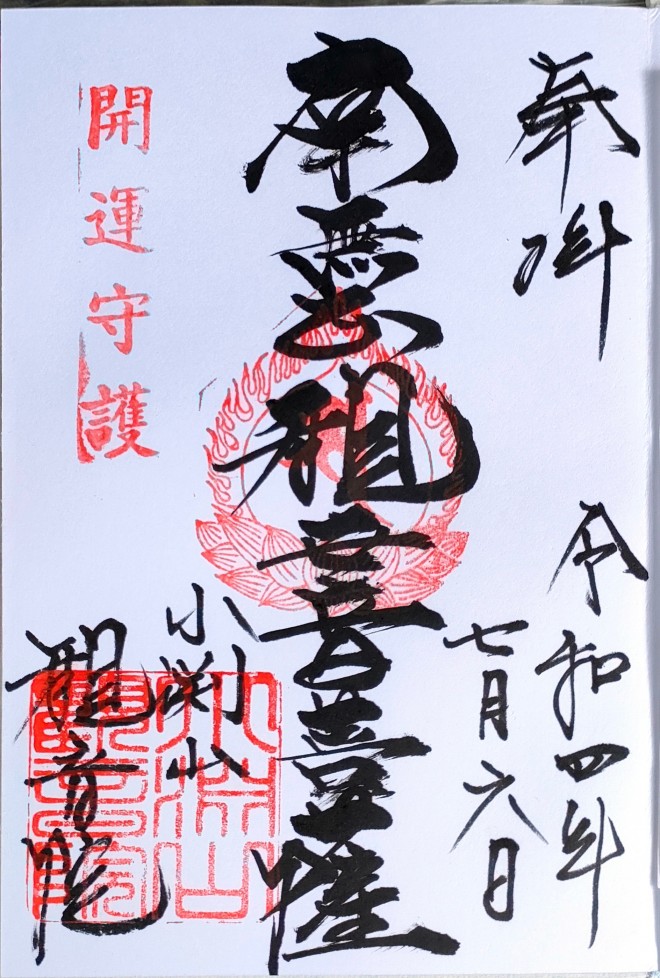 奉拝
令和四年
七月六日
南無観世音菩薩
小渕山
観音院
開運守護